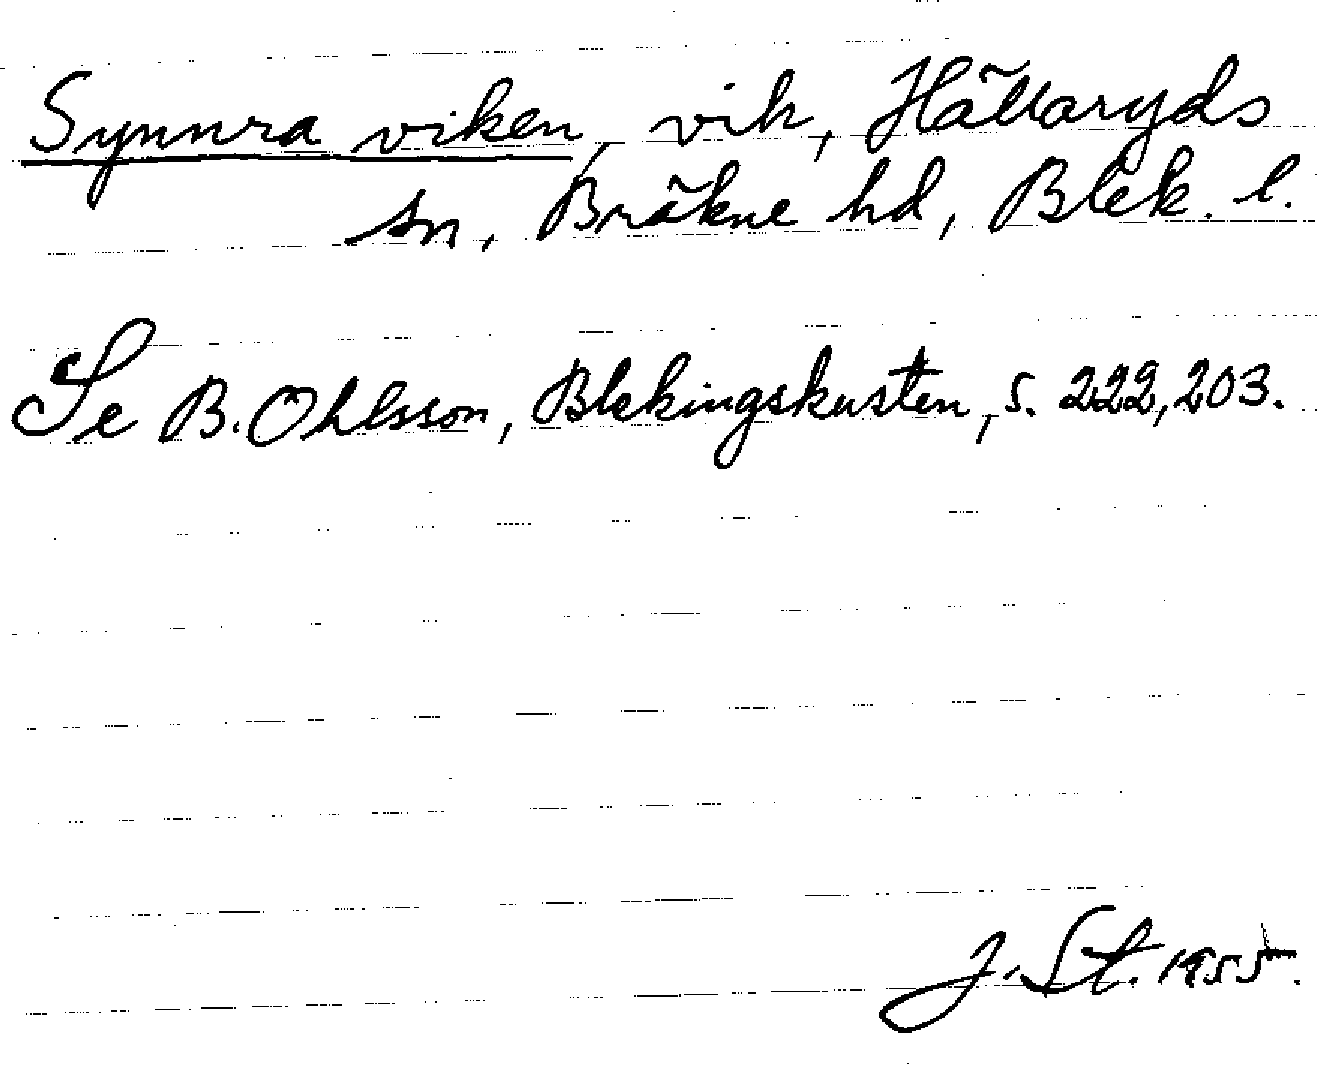 Synnra viken, vik, Hällaryds
sn, Bräkne hd, Blek. l.
Se B. Ohlsson, Blekingskusten, s. 222, 203.
J. St. 1955.